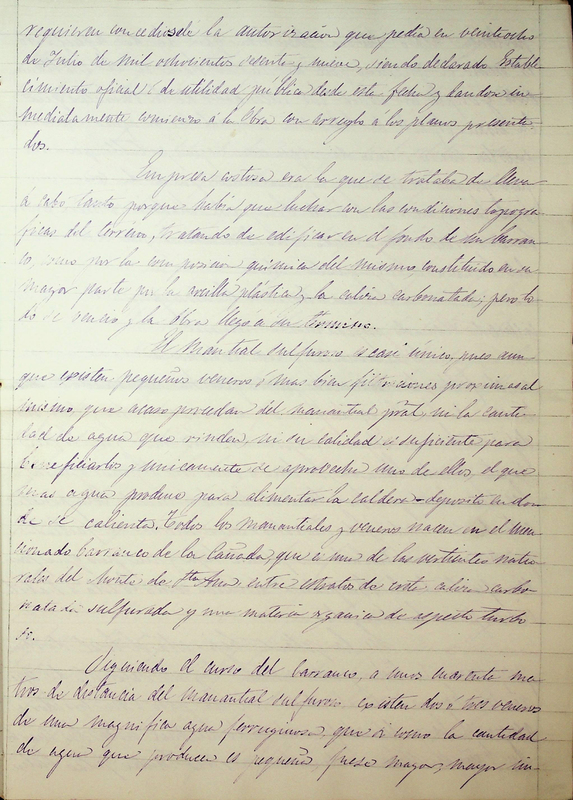 requieren concediosele la autorización que pedia en veintiocho
de Julio de mil ochocientos sesenta y nueve, siendo declarado Estable
cimiento oficial y de utilidad pública desde esta fecha y dandose in-
mediatamente comienzo á la Obra con arreglo a los planos presenta-
dos.
Empresa costosa era la que se trataba de lleva-
á cabo tanto porque habia que luchar con las condiciones topogra
ficas del terreno, tratando de edificar en el fondo de un barran-
co como por la composicion química del mismo, constituido en su
mayor parte por la arcilla plástica y la caliza carbonatada; pero to
do se venció y la Obra llegó á su termino.
El Manantial sulfuroso es casi único, pues aun-
que existen pequeños veneros ó mas bien filtraciones proximas al
mismo, que acaso procedan del manantial pral, ni la canti-
dad de agua que rinden, ni su calidad es suficiente para
beneficiarlos y unicamente se aprovecha uno de ellos el que
mas agua produce para alimentar la caldera-deposito en don-
de se calienta. Todos los manantiales y veneros nacen en el men-
cionado barranco de la Cañada, que es una de las vertientes natu-
rales del Monte de Sta Ana, entre estratos de costra caliza carbo-
natada sulfurada y una materia organica de aspecto turbo-
so.
Siguiendo el curso del barranco, a unos cuarenta me-
tros de distancia del manantial sulfuroso existen dos ó tres veneros
de una magnifica agua ferruginosa, que si como la cantidad
de agua que producen es pequeña fuese mayor, mayor im-